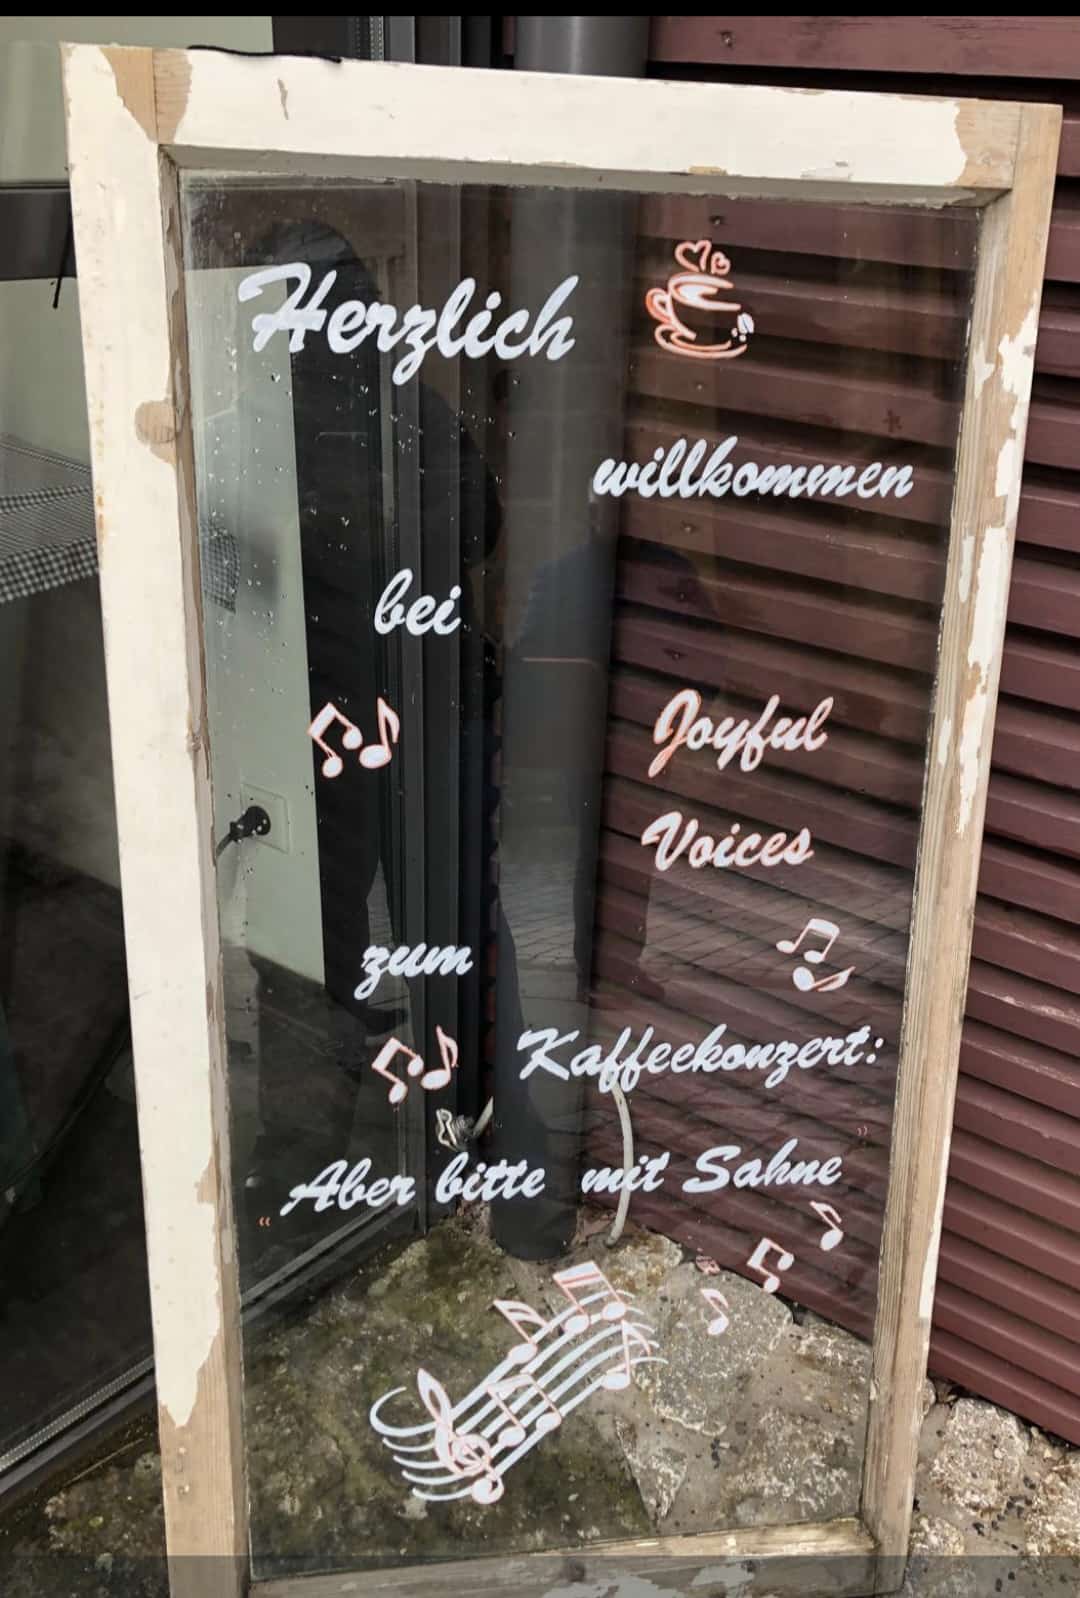 Herzlich
willkommen
bei
Joyful
Voices
zum
Kaffeekonzert:
"Aber bitte mit Sahne"